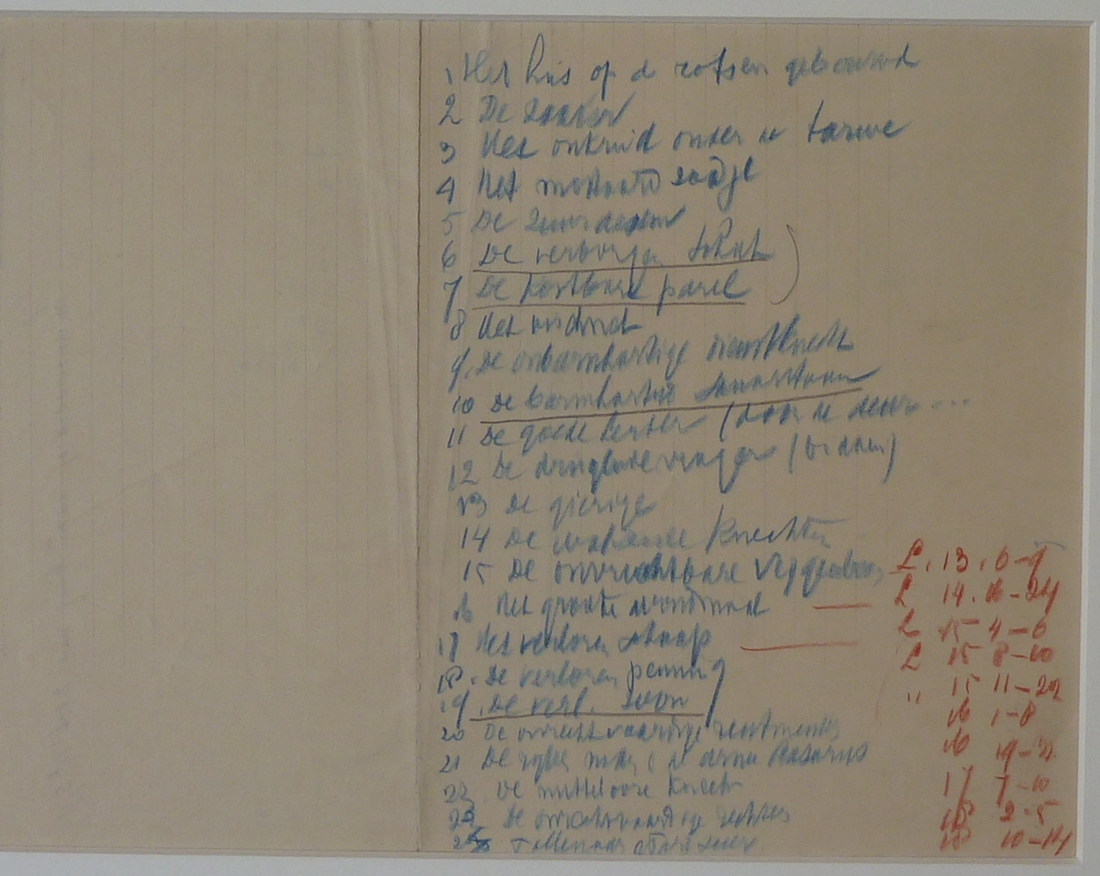 1 Het huis op d rotsen gebouwd
2 De zaaier
3 Het onkruid onder de tarwe
4 Het mostaard zaadje
5 De zuurdesem
6 De verborgen schat
7 De kostbare parel
8 Het vischnet
9. De onbarmhartige dienstknecht
10 De barmhartige Samaritaan
11 De goede herder (door de deur ...
12 De dringende vrager (
13 De gierige
14 De wakende knechten
15 De onvruchtbare vijgeboom L. 13. 6-9
16 Het groote avondmaal L 14. 16-24
17 Het verloren schaap L 15 4-6
18. De verloren penning L 15 8-10
19. De verl. zoon " 15 11-22
20 De onrechtvaardige rentmeester 16 1-8
21 De rijke man en de arme Lazarus 16 19-31
22 De nutteloose knecht 17 7-10
23 De onrechtvaardige rechter 18 2-5
24 Tollenaar 18 10-14